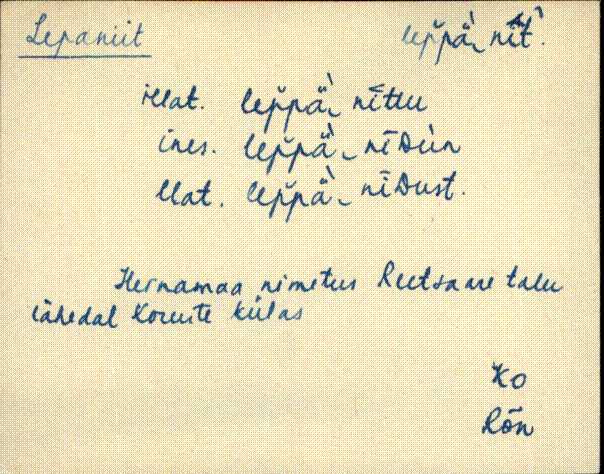 Lepaniit lep̆pä̀ nīt̀.
illat. lep̆pä̀ nīttu
ines. lep̆pä̀ nīDùn
llat. lep̆pä̀ nīDust.
Hernamaa nimetus Reetsaare talu
lähedal Koruste külas
Ko
Rõn